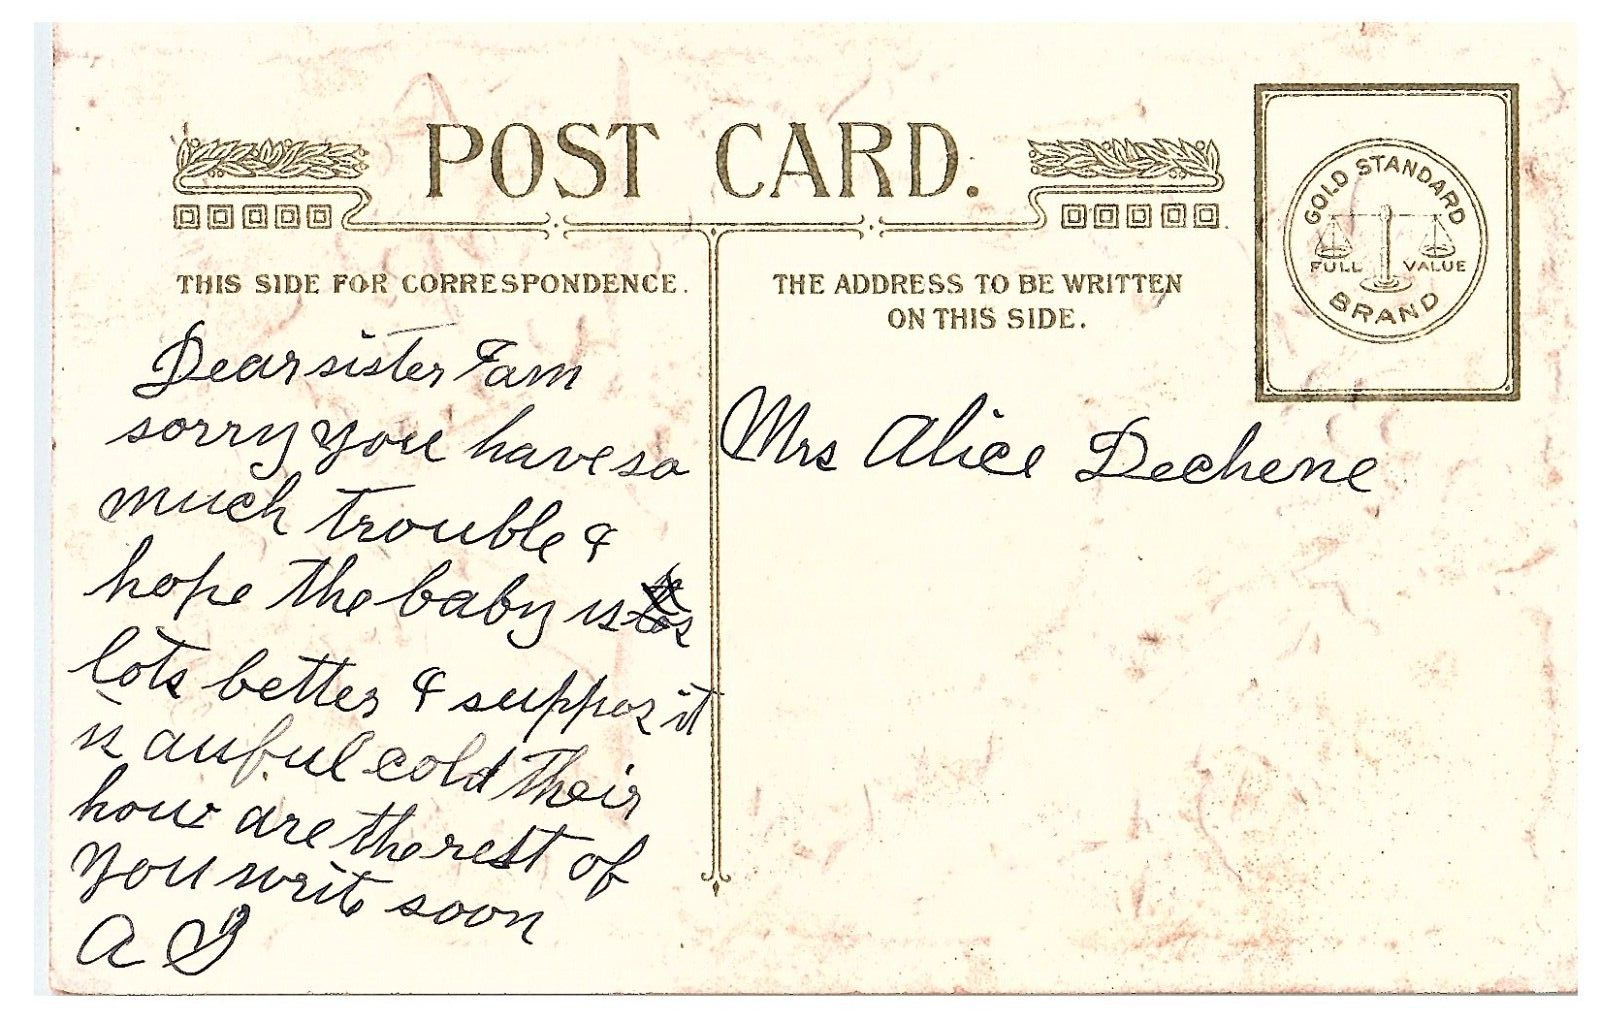 POST CARD.
THIS SIDE FOR CORRESPONDENCE.
THE ADDRESS TO BE WRITTEN
ON THIS SIDE.
GOLD STANDARD
FULL VALUE
BRAND
Dear sister I am
sorry you have so
much trouble &
hope the baby is
lots better & suppos it
is auful cold their
how are the rest of
you writ soon
A
Mrs Alice Dechene